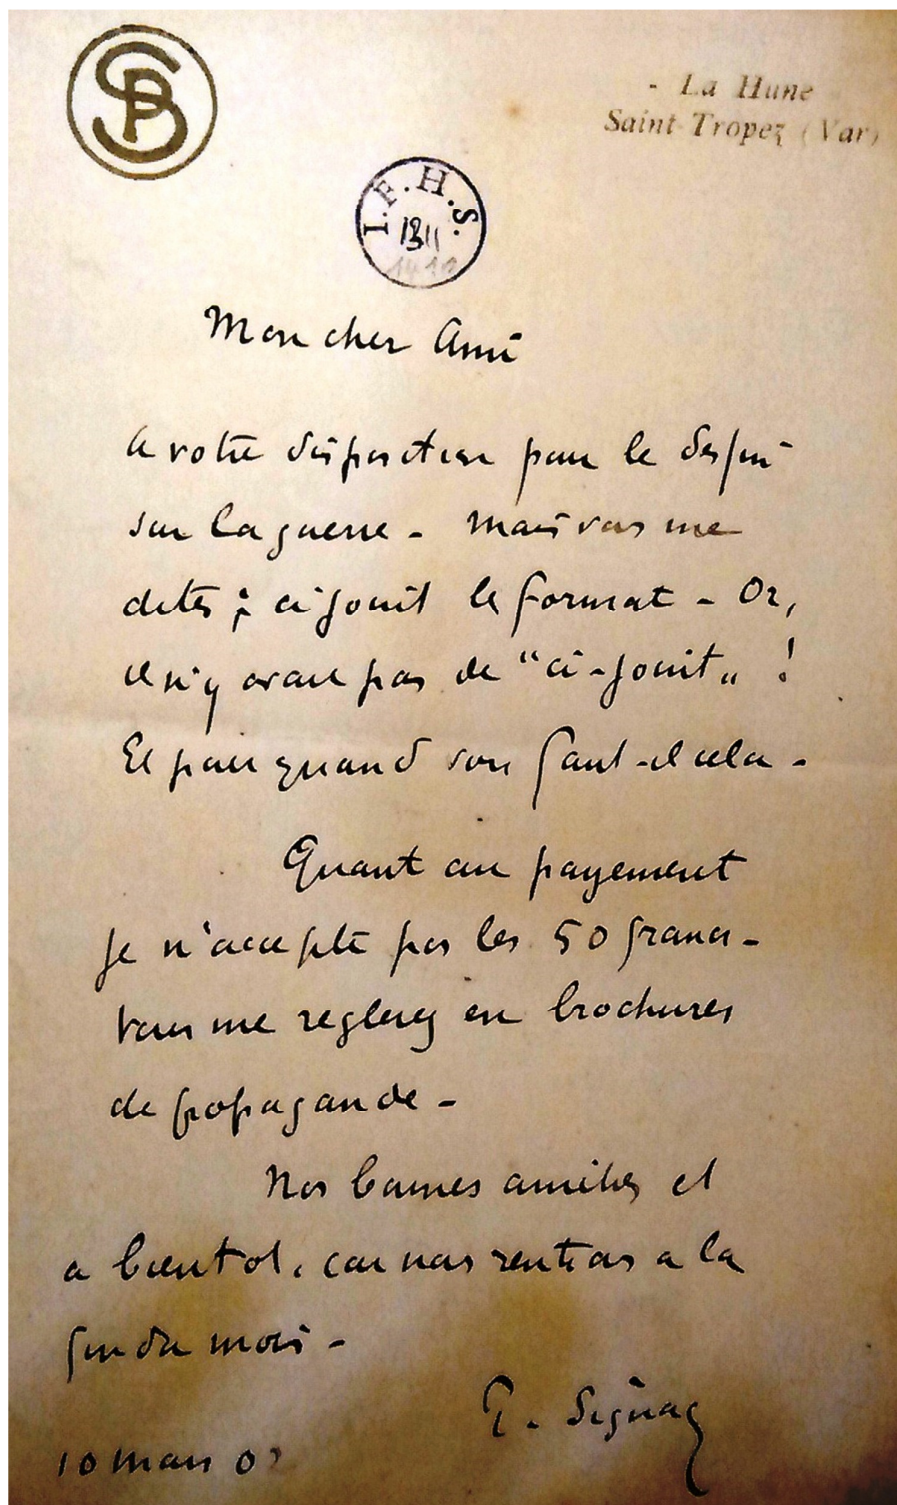 SPB
- La Hune
Saint-Tropez (Var)
I.F.H.S.
Mon cher Ami
a votre disposition pour le dessin
sur la guerre - mais vous me
dites : ci joint le format - Or,
il n'y avait pas de "ci-joint" !
Et pour quand vous faut-il cela -
Quant au payement
je n'accepte pas les 50 francs -
vous me reglerez en brochures
de propagande -
Nos bonnes amitiés et
a bientot, car nous rentrons a la
fin du mois -
P. Signac
10 mars